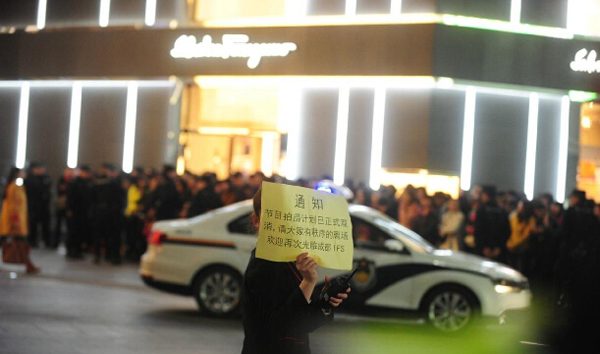 Salvatore Ferragamo
通知
节目拍摄计划已正式取
消、请大家有秩序的离场
欢迎再次光临成都IFS